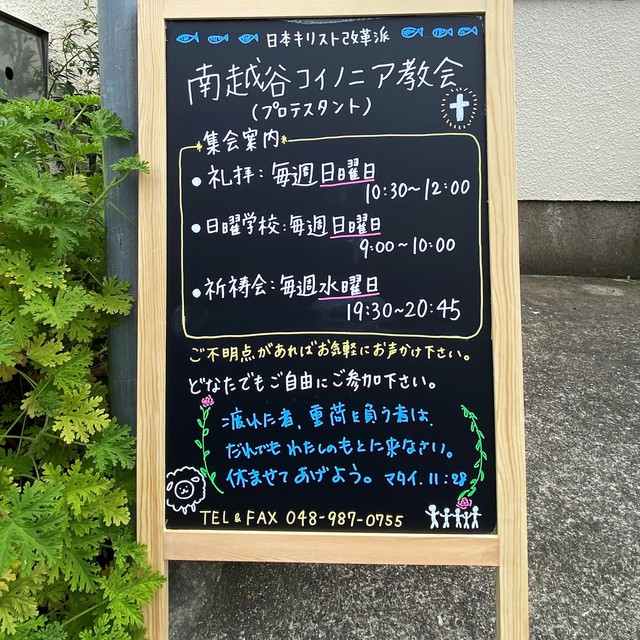 日本キリスト改革派
南越谷コイノニア教会
(プロテスタント)
集会案内
●礼拝：毎週日曜日
10:30〜12:00
●日曜学校：毎週日曜日
9:00〜10:00
●祈祷会：毎週水曜日
19:30〜20:45
ご不明点があればお気軽にお声かけ下さい。
どなたでもご自由にご参加下さい。
疲れた者、重荷を負う者は、
だれでもわたしのもとに来なさい。
休ませてあげよう。マタイ.11:28
TEL & FAX 048-987-0755